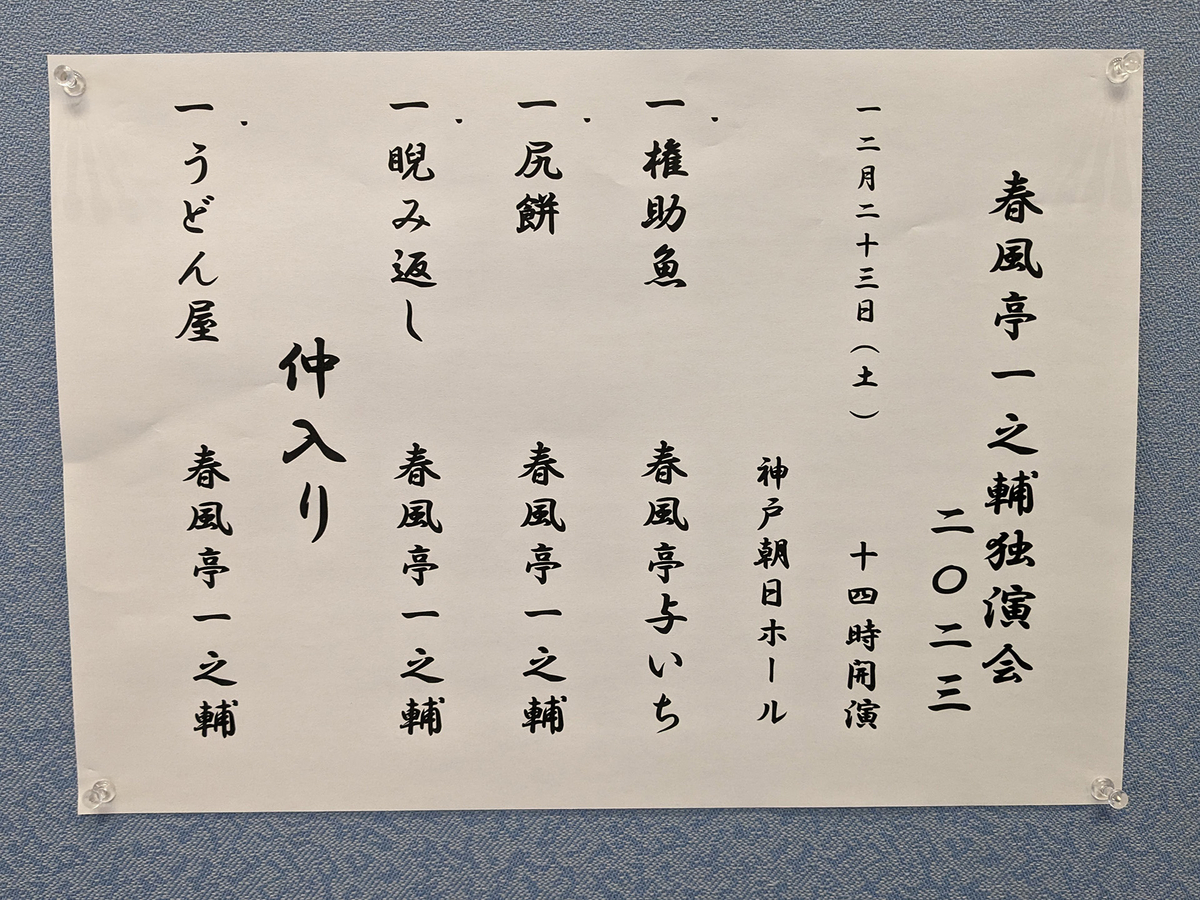 春風亭一之輔独演会
二〇二三
一二月二十三日（土） 十四時開演
神戸朝日ホール
一、権助魚 春風亭与いち
一、尻餅 春風亭一之輔
一、睨み返し 春風亭一之輔
仲入り
一、うどん屋 春風亭一之輔